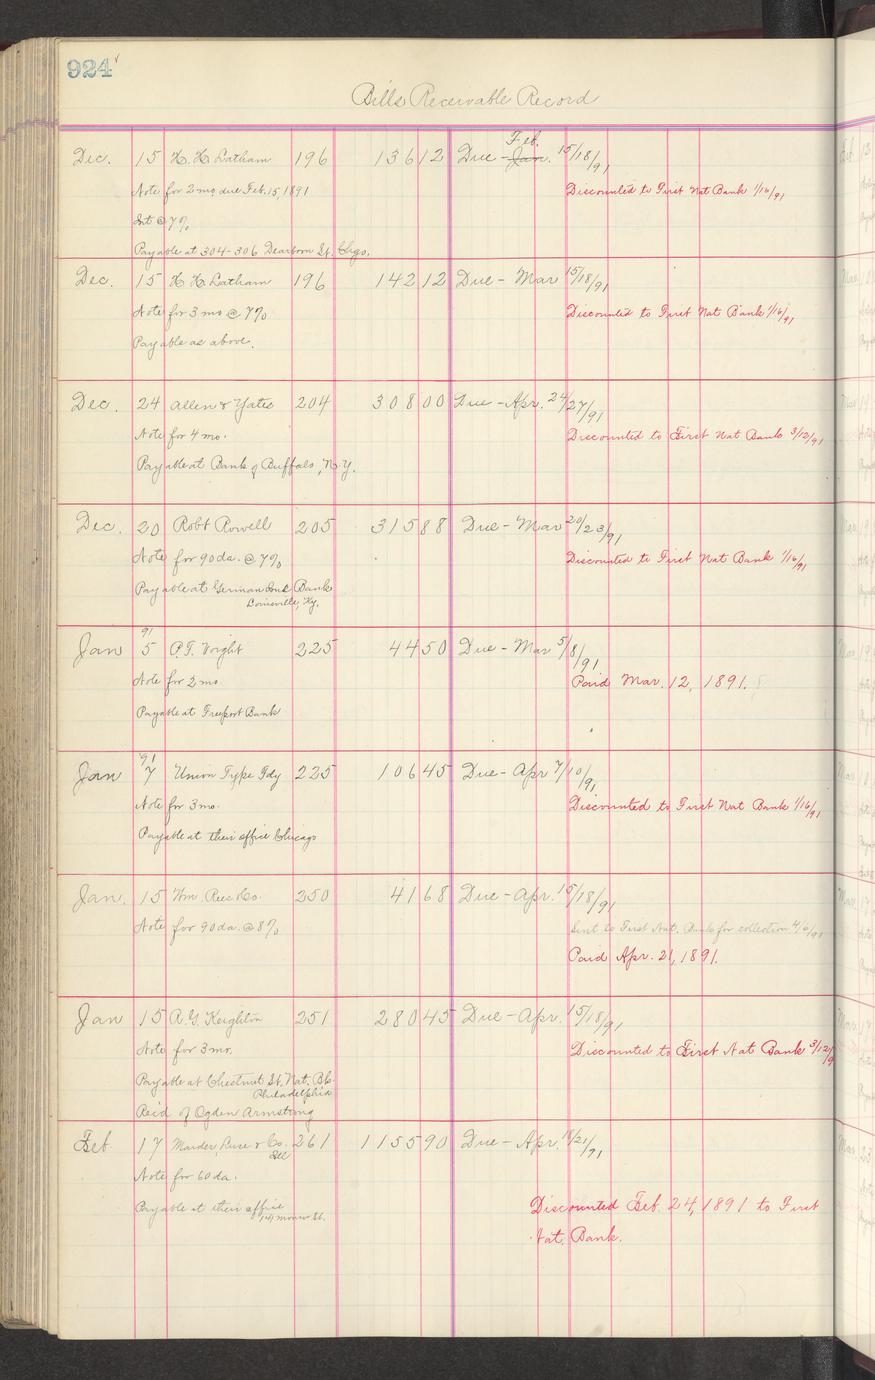 924
Bills Receivable Record
Feb.
Dec. 15 H. H. Latham 196 136 12 Due - Jan. 15/18/91
Note for 2 mo. due Feb. 15, 1891 Discounted to First Nat Bank 1/16/91
Int @ 7%
Payable at 304-306 Dearborn St. Chgo.
Dec. 15 H. H. Latham 196 142 12 Due - Mar 15/18/91
Note for 3 mo @ 7% Discounted to First Nat Bank 1/16/91
Payable as above.
Dec. 24 Allen & Yates 204 308 00 Due - Apr. 24/27/91
Note for 4 mo. Discounted to First Nat Bank 3/12/91
Payable at Bank of Buffalo, N.Y.
Dec. 20 Robt Rowell 205 315 88 Due - Mar 20/23/91
Note for 90 da. @ 7% Discounted to First Nat Bank 1/16/91
Payable at German Bank
Louisville, Ky.
91
Jan 5 P.T. Voight 225 44 50 Due - Mar 5/8/91
Note for 2 mo. Paid Mar. 12, 1891.
Payable at Freeport Bank
'91
Jan 7 Union Type Fdy 225 106 45 Due - Apr 7/10/91
Note for 3 mo. Discounted to First Nat Bank 1/16/91
Payable at their office Chicago
Jan. 15 Wm. Co. 250 41 68 Due - Apr. 15/18/91
Note for 90 da. @ 8% Sent to First Nat. Bank for collection 4/6/91
Paid Apr. 21, 1891.
Jan 15 R. G. Keighton 251 280 45 Due - Apr. 15/18/91
Note for 3 mo. Discounted to First Nat Bank 3/12/9
Payable at Chestnut St. Nat. Bk.
Philadelphia
Rec'd of Ogden Armstrong
Feb. 17 Marder, Luse & Co. 261 1155 90 Due - Apr. 18/21/91
Sec
Note for 60 da.
Payable at their office Discounted Feb. 24, 1891 to First
141 Monroe St.
Nat. Bank.